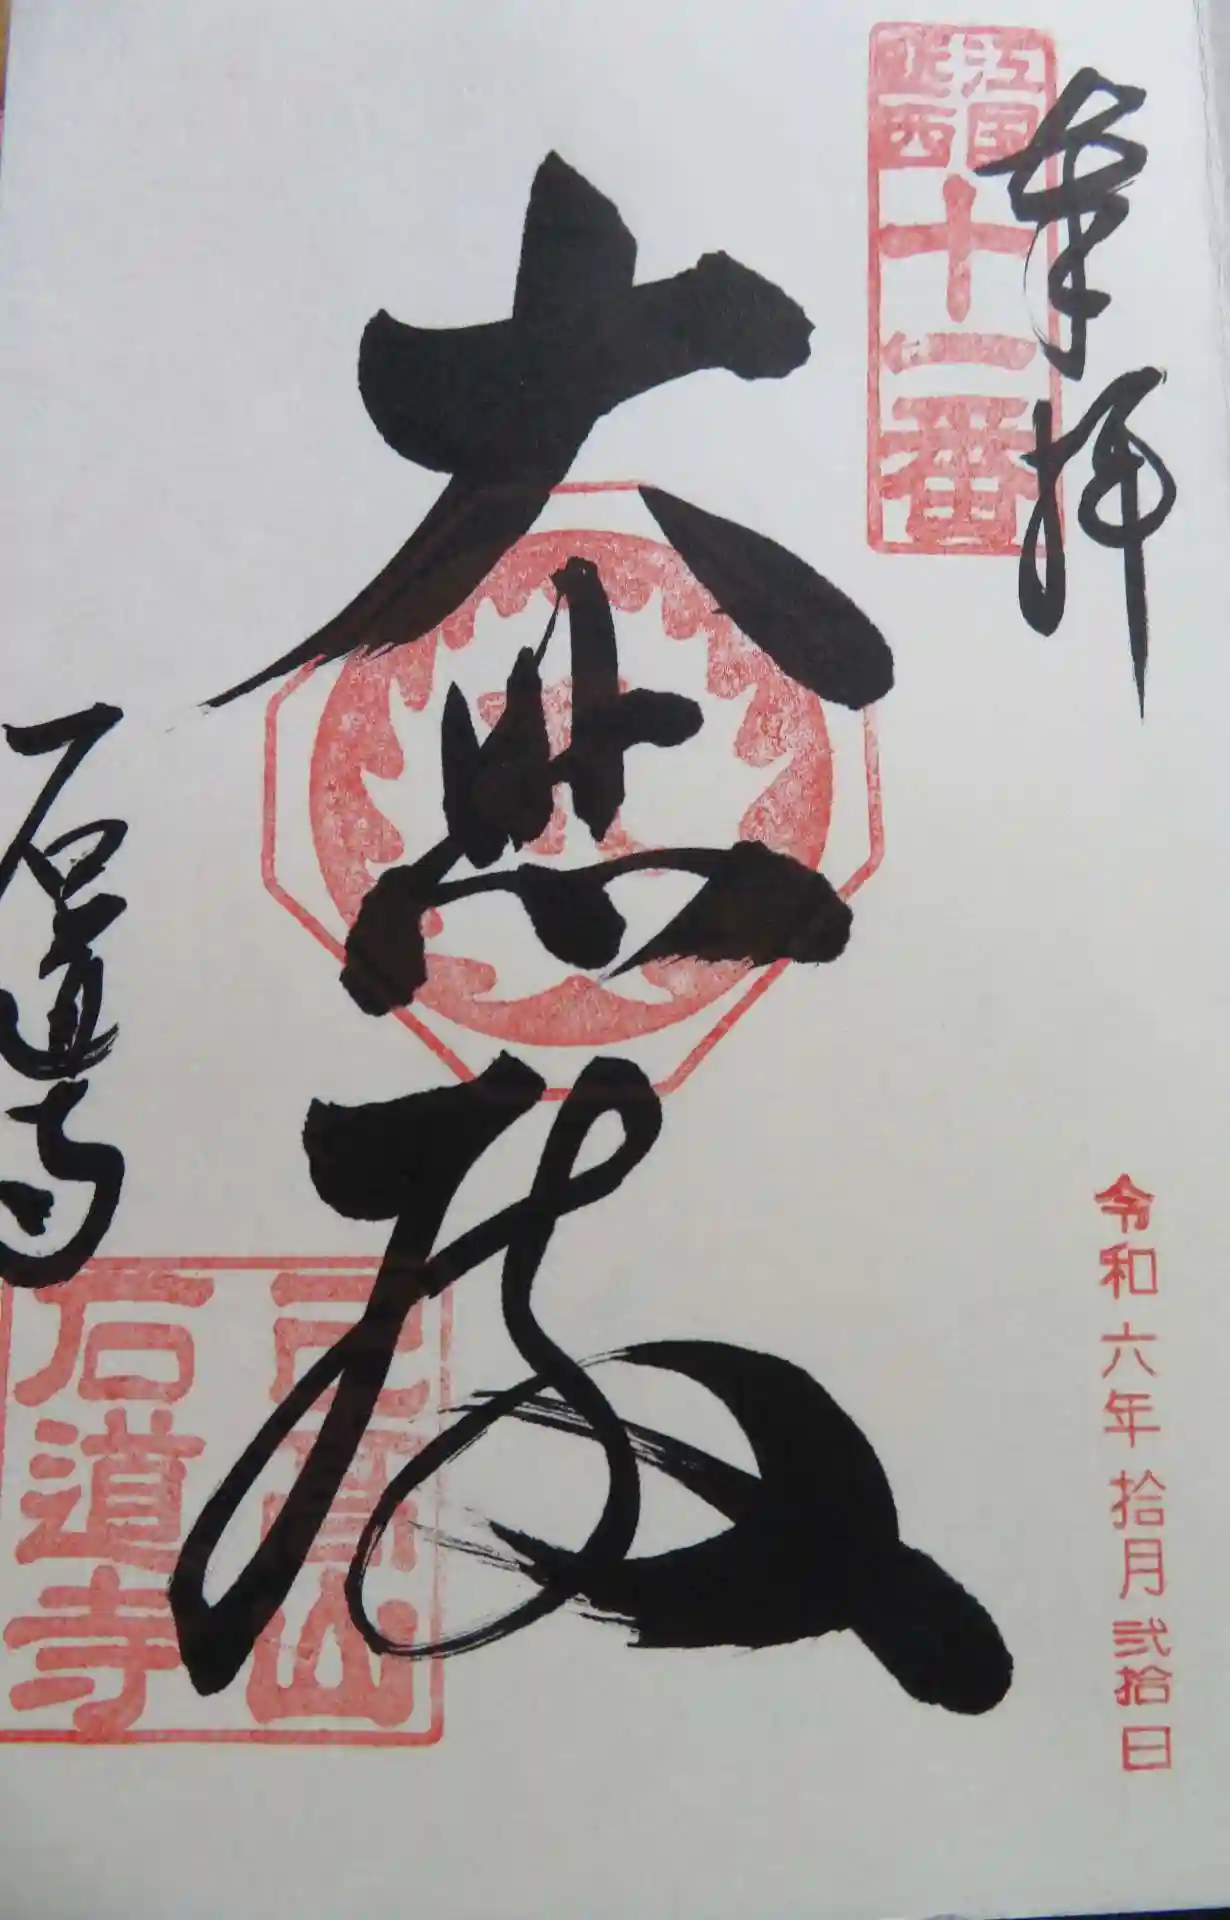 奉拝
近江
西国
十一番
大悲殿
石道寺
己高山
石道寺
令和六年拾月弐拾日